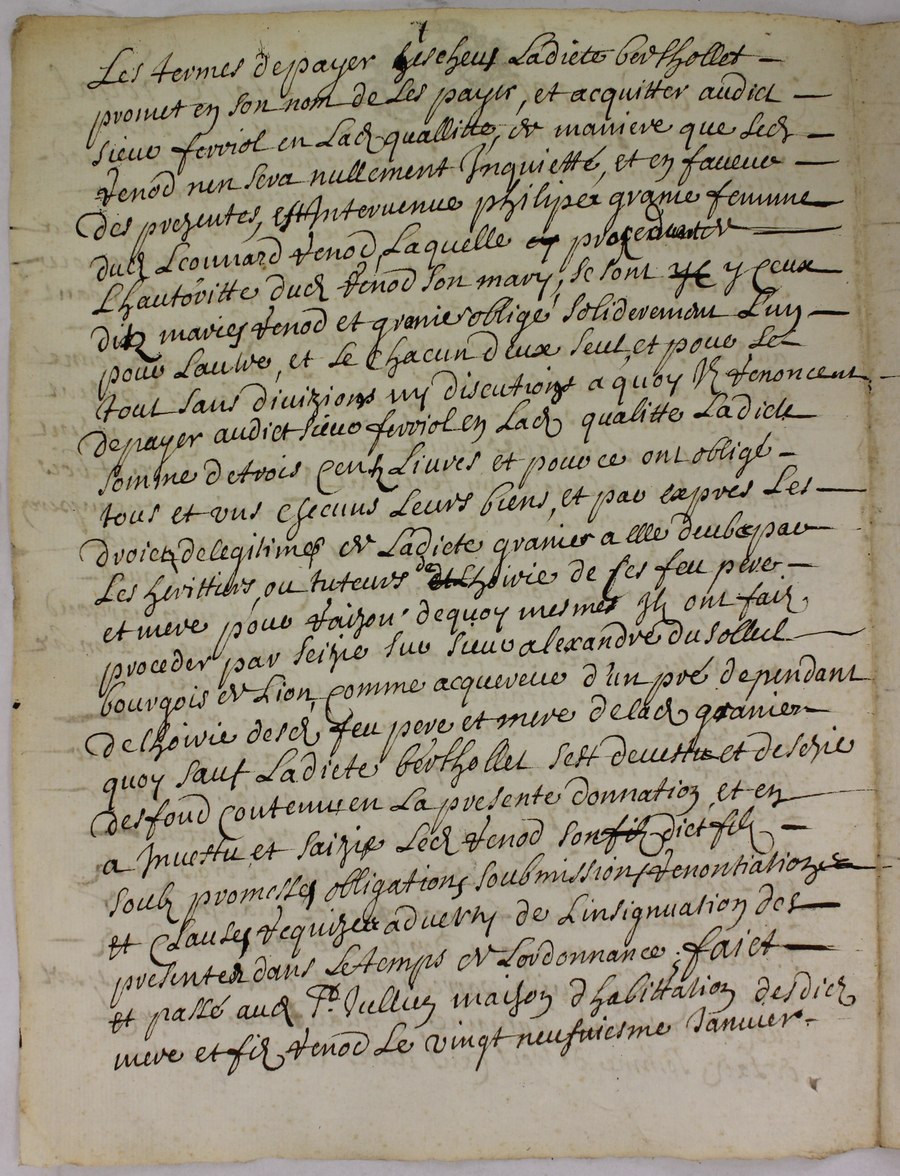 Les termes de payer escheus Ladicte berthollet
promet en son nom de Les payer, et acquitter audict
sieur ferriol en Lad quallitte, de maniere que Led
Renod nen sera nullement Inquietté, et en faveur
Des prezentes, est Intervenue philipea granie femme
dud Leonnard Renod Laquelle procedant de
Lhauthoritte dud Renod son mary, se sont yceux
dits maries Renod et granier obligé soliderement Lun
pour Lautre, et Le Chacun deux seul et pour Le
tout sans divizions ny discutions a quoy Ilz Renoncent
de payer audict sieur ferriol en Lad qualitte Ladicte
somme de trois Centz Livres et pour ce ont obligé
tous et uns checuns Leurs biens, et par expres Les
droictz de legitimes de Ladicte granier a elle deubz par
Les herittiers, ou tuteurs de Lhoirie de ses feu pere
et mere pour Raizon de quoy mesmes Ilz ont faict
proceder par seizie sur sieur alexandre du solleil
bourgois de Lion, comme acquereur d'un pré dependant
de Lhoirie desd feu pere et mere de lad granier
quoy sauf Ladicte berthollet sest devestu et desezie
des fond Contenu en La presente donnation et en
a Investu et saizie Led Renod son dict filz
soubz promesses obligations soubmissions Renontiations
et Clauses Requizes advertis de Linsignuation des
presentes dans Le temps de Lordonnance ; faict
et passé aud St Jullien maison d'habittation desdictz
mere et filz Renod Le vingt neufviesme Janvier